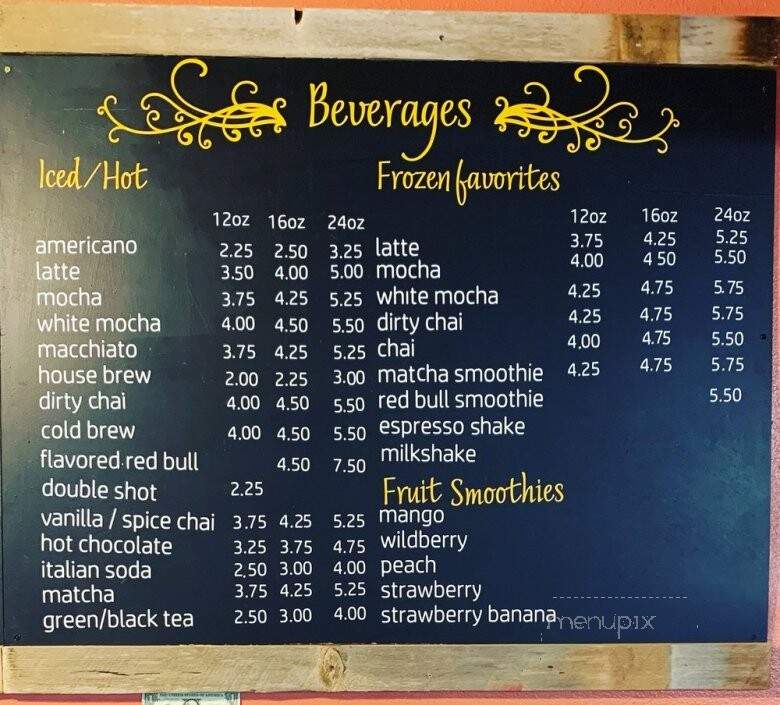 Beverages
Iced/Hot
12oz 16oz 24oz
americano 2.25 2.50 3.25
latte 3.50 4.00 5.00
mocha 3.75 4.25 5.25
white mocha 4.00 4.50 5.50
macchiato 3.75 4.25 5.25
house brew 2.00 2.25 3.00
dirty chai 4.00 4.50 5.50
cold brew 4.00 4.50 5.50
flavored red bull 4.50 7.50
double shot 2.25
vanilla / spice chai 3.75 4.25 5.25
hot chocolate 3.25 3.75 4.75
italian soda 2.50 3.00 4.00
matcha 3.75 4.25 5.25
green/black tea 2.50 3.00 4.00
Frozen favorites
12oz 16oz 24oz
latte 3.75 4.25 5.25
mocha 4.00 4 50 5.50
white mocha 4.25 4.75 5.75
dirty chai 4.25 4.75 5.75
chai 4.00 4.75 5.50
matcha smoothie 4.25 4.75 5.75
red bull smoothie 5.50
espresso shake
milkshake
Fruit Smoothies
mango
wildberry
peach
strawberry
strawberry banana
menupix